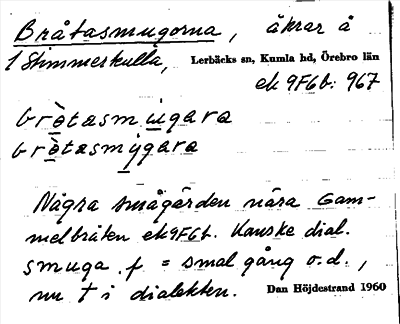 Bråtasmugorna, åkrar å
1 Stimmerkulla, Lerbäcks sn, Kumla hd, Örebro län
ek 9F6b: 967
brètasmùgara
brètasmỳgara
Några smågärden nära Gam-
melbråten ek9F6b. Kanske dial.
smuga f = smal gång o.d.,
nu † i dialekten. Dan Höjdestrand 1960